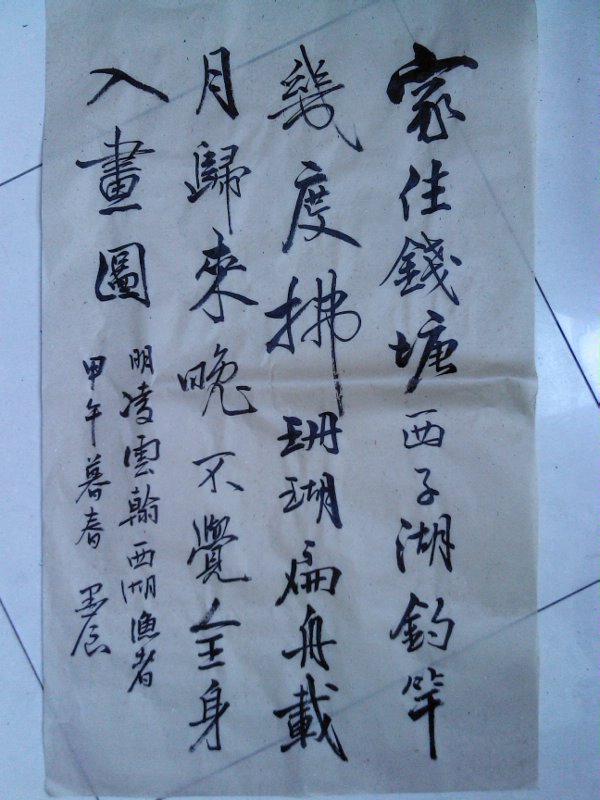 家住錢塘西子湖釣竿
幾度拂珊瑚扁舟載
月歸來晚不覺全身
入畫圖
明凌雲翰西湖漁者
甲午暮春